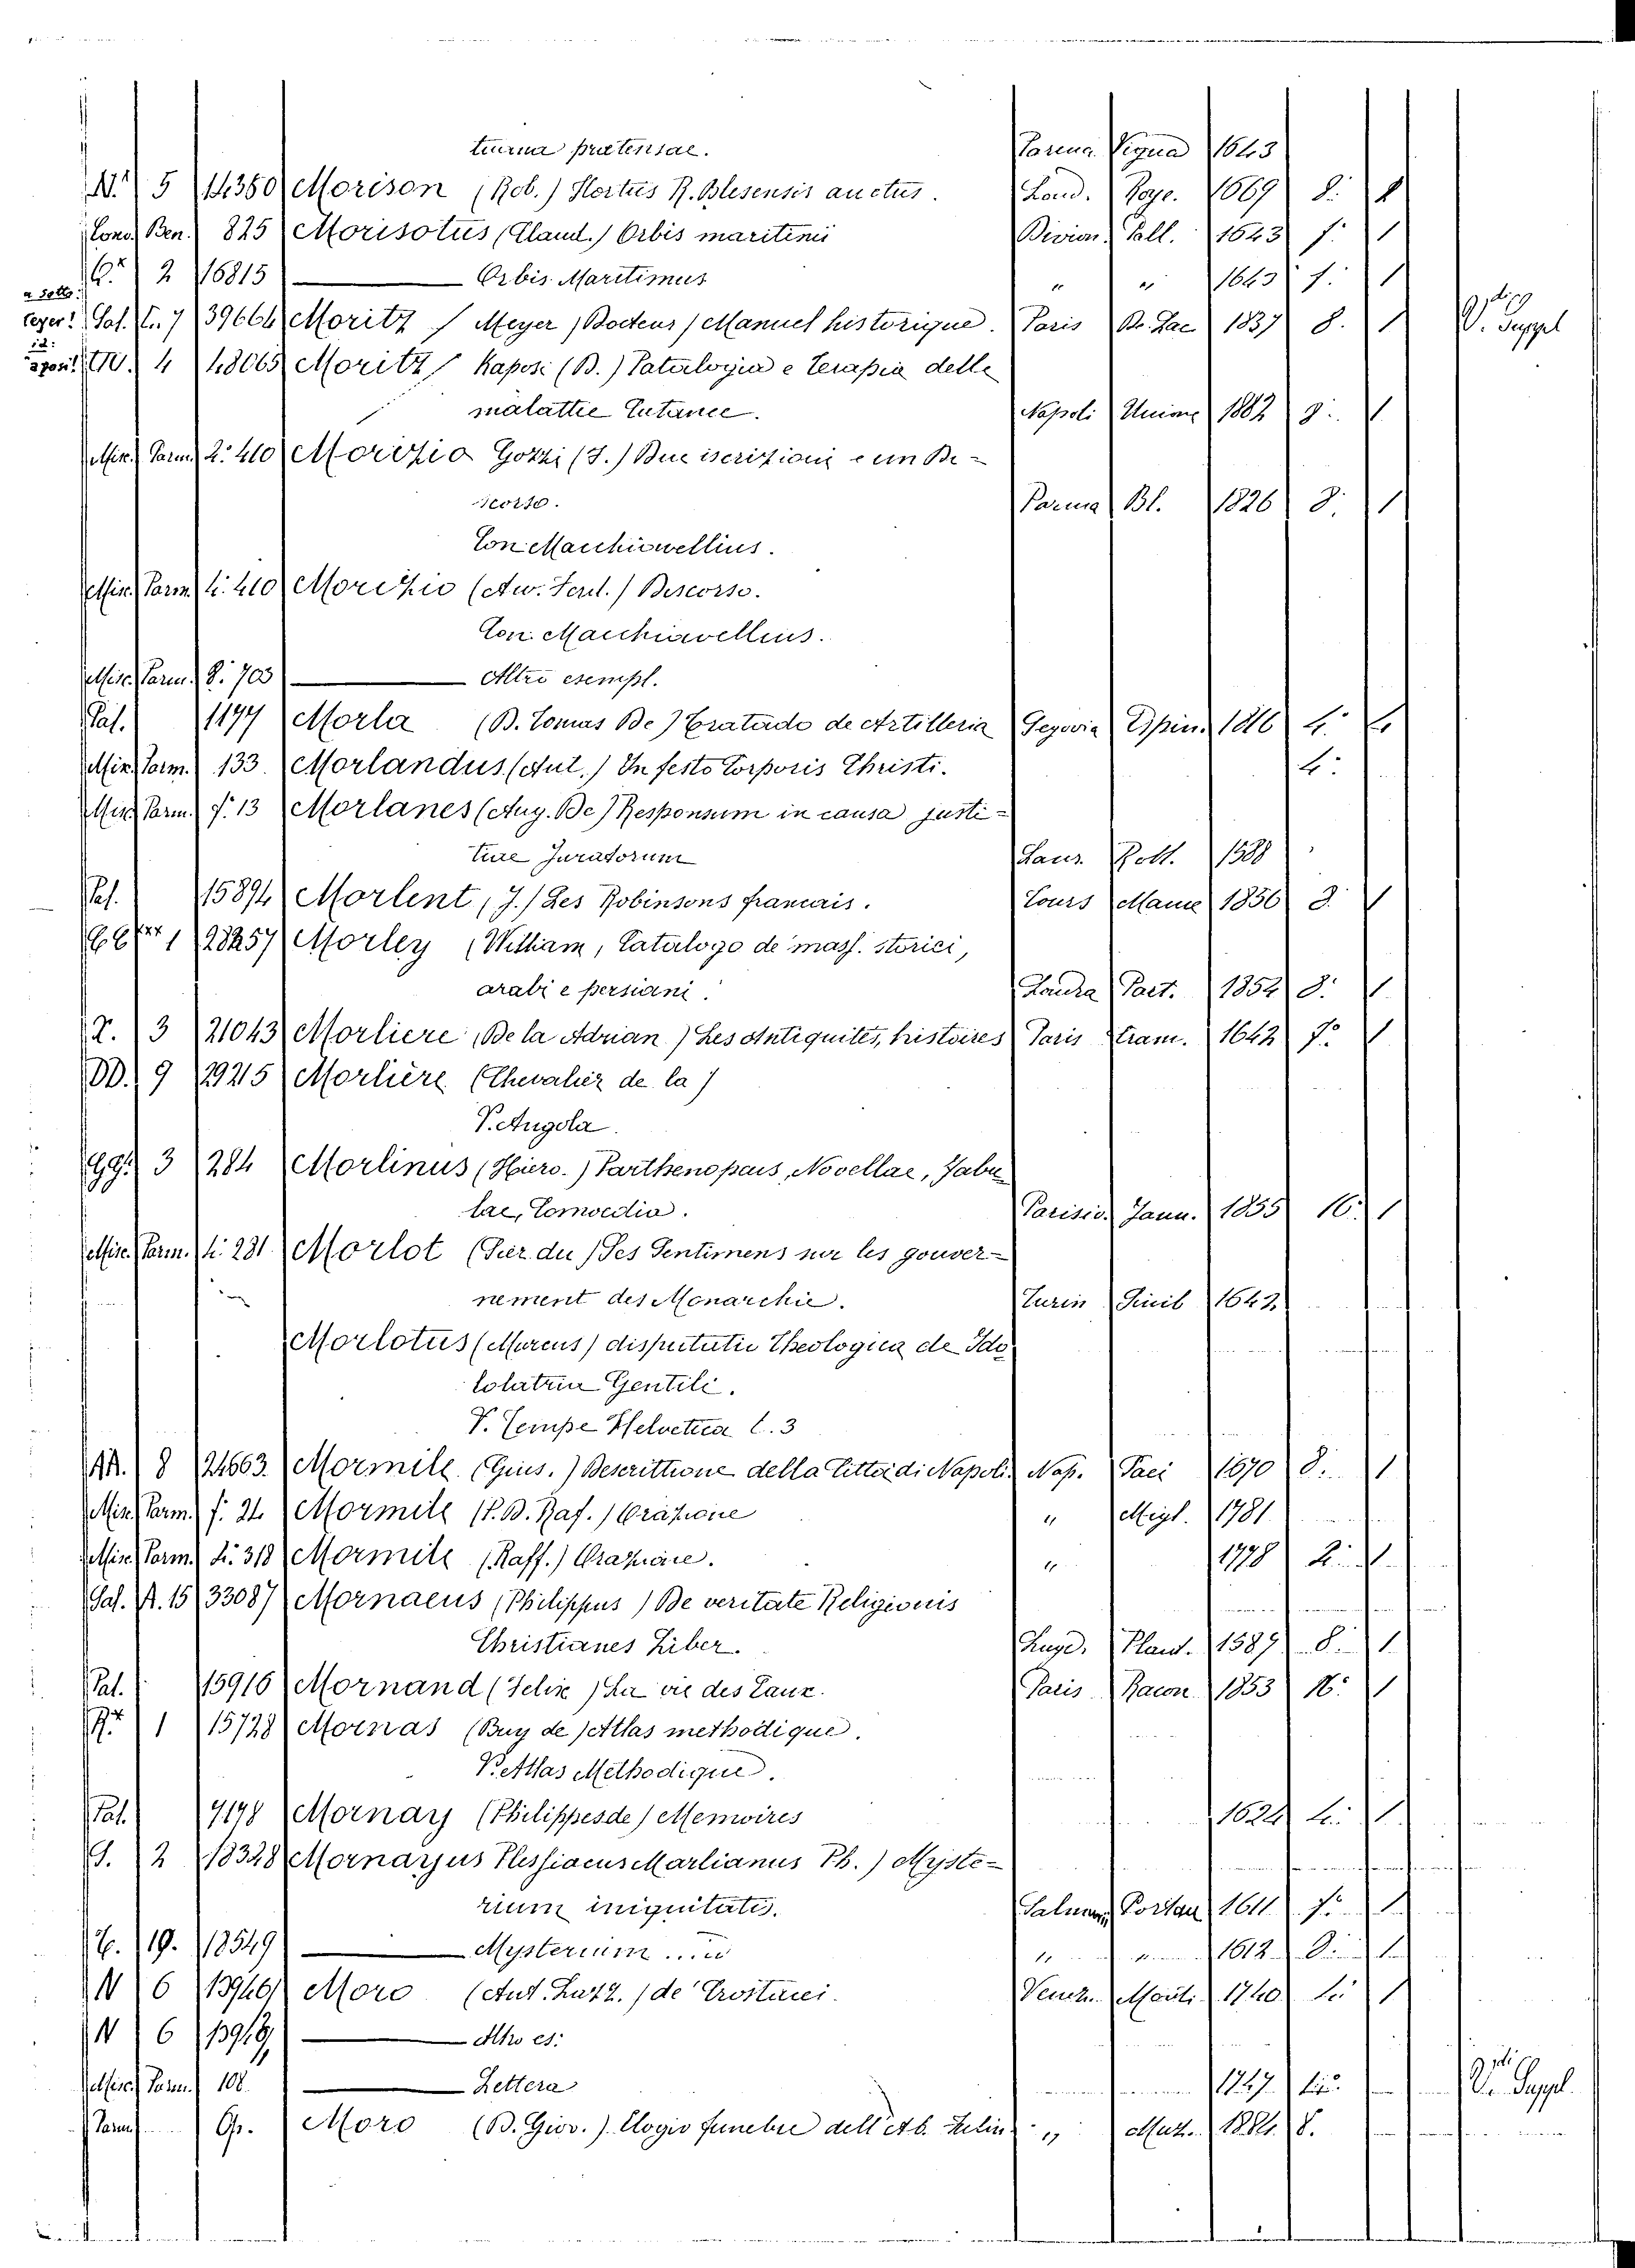 turma pretensae. Parma Vigna 1643
N.º 5 14350 Morison (Rob.) Hortus R. Blesensis auctus. Lond. Roye. 1669 8. 1
Cons. Ben. 825 Morisotus (Claud.) Orbis maritimi Divion. Pall. 1643 f. 1
2 16815 —— Orbis Maritimus " " 1643 f. 1
Sal. 7 39664 Moritz Meyer (Docteur) Manuel historique. Paris 1837 8. 1 V. Suppl
4 48065 Moritz Kaposi (B.) Patologia e Terapia delle
malattie Cutanee. Napoli Unione 1882 8. 1
Misc. Parm. 2: 410 Morizio Gozzi (F.) Due iscrizioni e un Di-
scorso. Parma Bl. 1826 8. 1
Con Macchiavellius.
Misc. Parm. 4: 410 Morizio (Avv. Ferd.) Discorso.
Con. Macchiavellius.
Misc. Parm. 8: 703 —— Altro esempl.
Pal. 1177 Morla (D. Tomas De) Tratado de Artilleria Segovia Espin. 1816 4.
Misc. Parm. 133. Morlandus (Aut.) In festo Corporis Christi. 4.
Misc. Parm. f. 13 Morlanes (Aug. De) Responsum in causa justi-
tiae Juratorum 1588
Pal. 15894 Morlent (J.) Les Robinsons francais. Tours Mame 1856 8. 1
1 28257 Morley (William, Catalogo de' mass. storici,
arabi e persiani. Londra Part. 1854 8. 1
3 21043 Morliere (De la Adrian) Les Antiquites, histoires Paris 1642 f. 1
DD. 9 29215 Morlière (Chevalier de la)
V. Angola.
gg. 3 284 Morlinus (Hiero.) Parthenopaeus, Novellae, Fabu
lae, Comoedia. Parisiis Jann. 1855 16. 1
Misc. Parm. 4: 231 Morlot (Sier du) Ses Sentimens sur les gouver-
nement des Monarchie. Turin Sinib 1642
Morlotus (Marcus) disputatio Theologica de Ido
lolatria Gentili.
V. Tempe Helvetica t. 3
AA. 8 24663 Mormile (Gius.) Descrittione della Citta di Napoli Nap. Paci 1670 8. 1
Misc. Parm. f. 24 Mormile (P. D. Raf.) Orazione " Migl. 1781
Misc. Parm. 4: 318 Mormile (Raff.) Orazione. " 1778 4. 1
Sal. A. 15 33087 Mornaeus (Philippus) De veritate Religionis
Christianes Liber. Lugd. Plant. 1587 8. 1
Pal. 15916 Mornand (Felix) La vie des Eaux. Paris Bacon 1853 16. 1
1 15728 Mornas (Buy de) Atlas methodique.
V. Atlas Methodique.
Pal. 7178 Mornay (Philippes de) Memoires 1624 4. 1
2 18328 Mornayus Plessiacus Marlianus Ph.) Myste-
rium iniquitatis. Salmur Portau 1611 f. 1
19. 18549 —— Mysterium .... " " 1612 8. 1
N 6 Moro (Ant. Lazz.) de' Crostacei. Venez. Monti. 1740 4. 1
N 6 —— Altro es:
Misc. Parm. 108. —— Lettera 1747 4. V. Suppl.
Parm. Gr. Moro (D. Giov.) Elogio funebre dell'Ab. " 8.